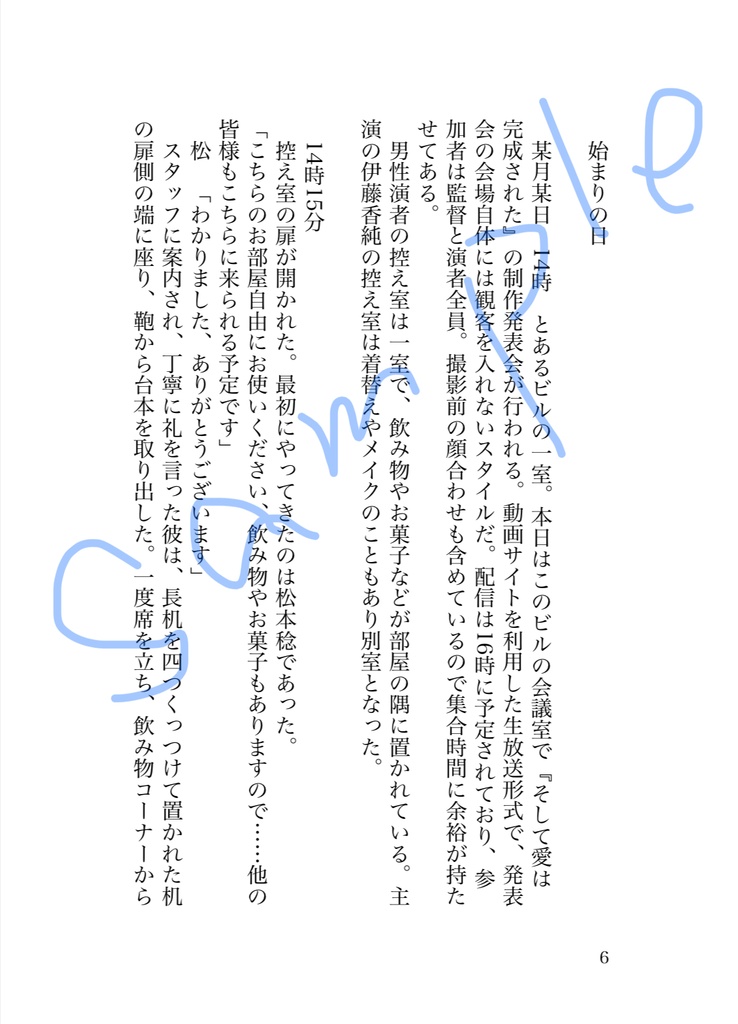 始まりの日
某月某日　14時　とあるビルの一室。本日はこのビルの会議室で『そして愛は
完成された』の制作発表会が行われる。動画サイトを利用した生放送形式で、発表
会の会場自体には観客を入れないスタイルだ。配信は16時に予定されており、参
加者は監督と演者全員。撮影前の顔合わせも含めているので集合時間に余裕が持た
せてある。
男性演者の控え室は一室で、飲み物やお菓子などが部屋の隅に置かれている。主
演の伊藤香純の控え室は着替えやメイクのこともあり別室となった。
14時15分
控え室の扉が開かれた。最初にやってきたのは松本稔であった。
「こちらのお部屋自由にお使いください、飲み物やお菓子もありますので……他の
皆様もこちらに来られる予定です」
松　「わかりました、ありがとうございます」
スタッフに案内され、丁寧に礼を言った彼は、長机を四つくっつけて置かれた机
の扉側の端に座り、鞄から台本を取り出した。一度席を立ち、飲み物コーナーから
6
Sample